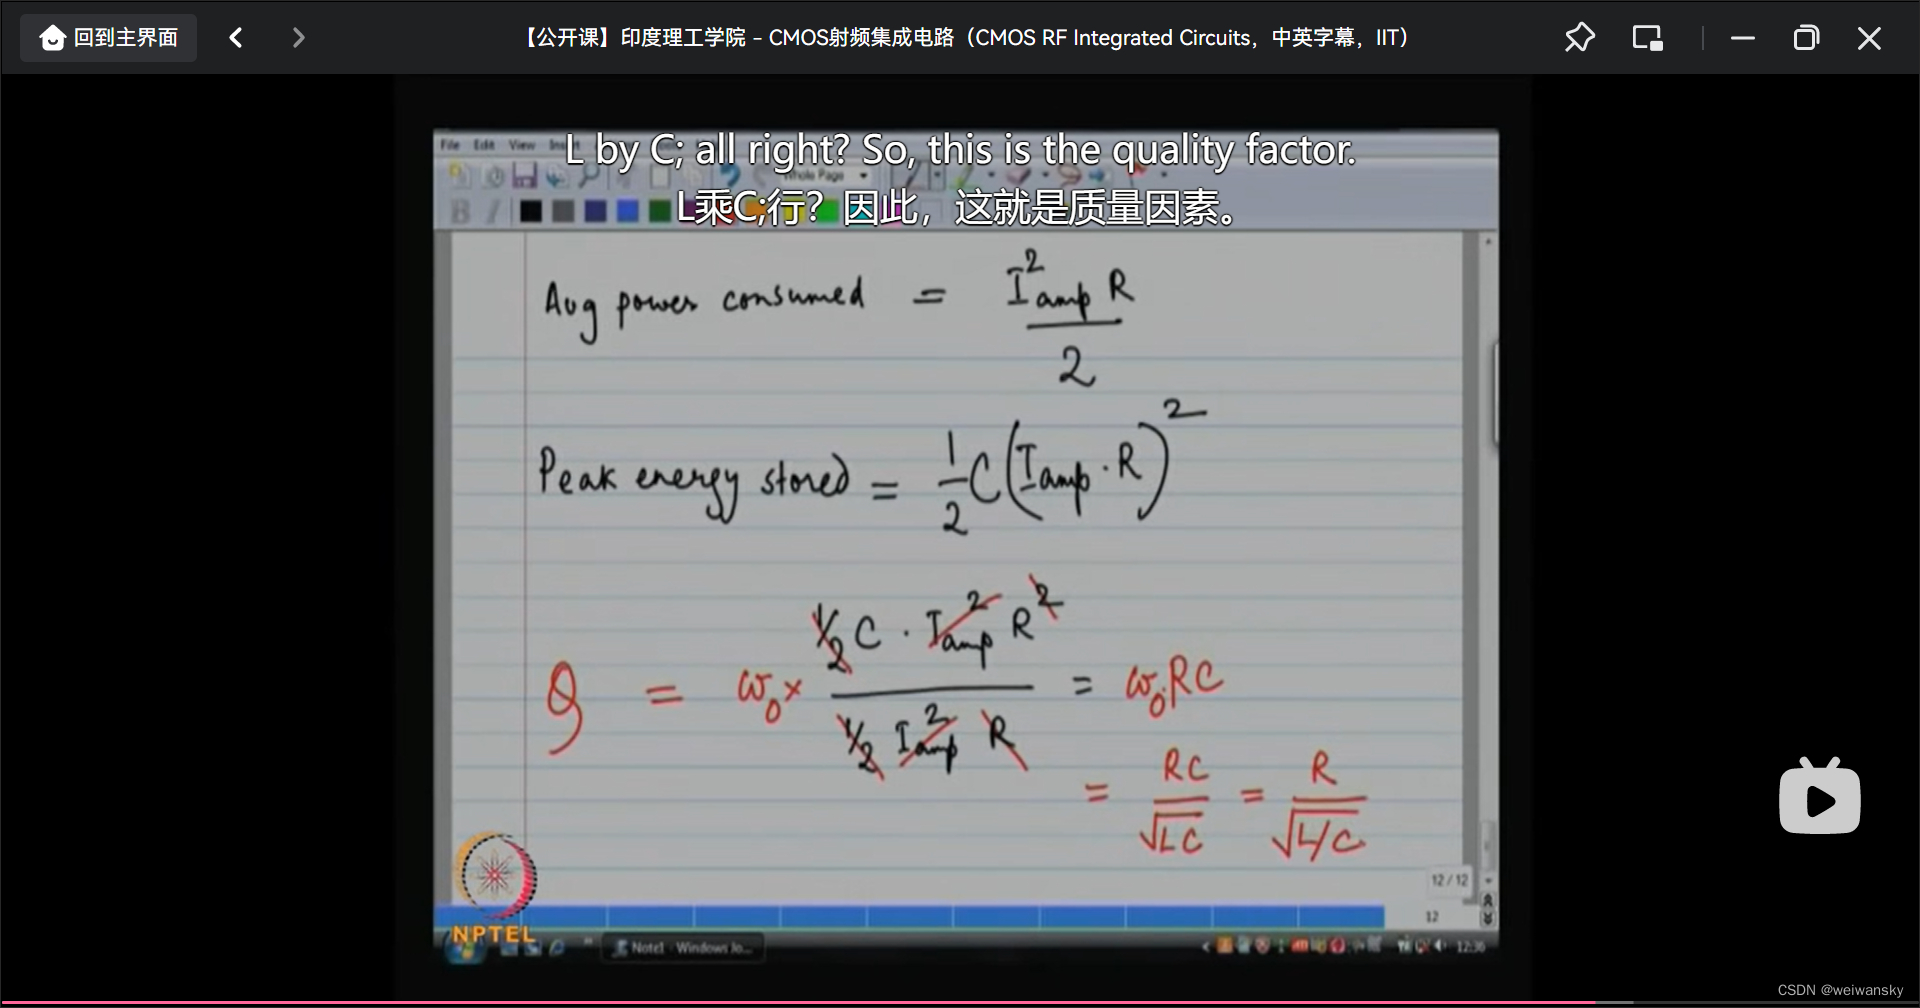 回到主界面
【公开课】印度理工学院 - CMOS射频集成电路（CMOS RF Integrated Circuits，中英字幕，IIT）
File Edit View
L by C; all right? So, this is the quality factor.
Whole Page
L乘C;行？因此，这就是质量因素。
B I
Avg power consumed = I²amp R / 2
Peak energy stored = 1/2 C (Iamp · R)²
Q = ω₀ × (1/2 C · I²amp R²) / (1/2 I²amp R) = ω₀RC
= RC / √LC = R / √L/C
12 / 12
12
NPTEL
Note1 - Windows Jo...
12:36
CSDN @weiwansky